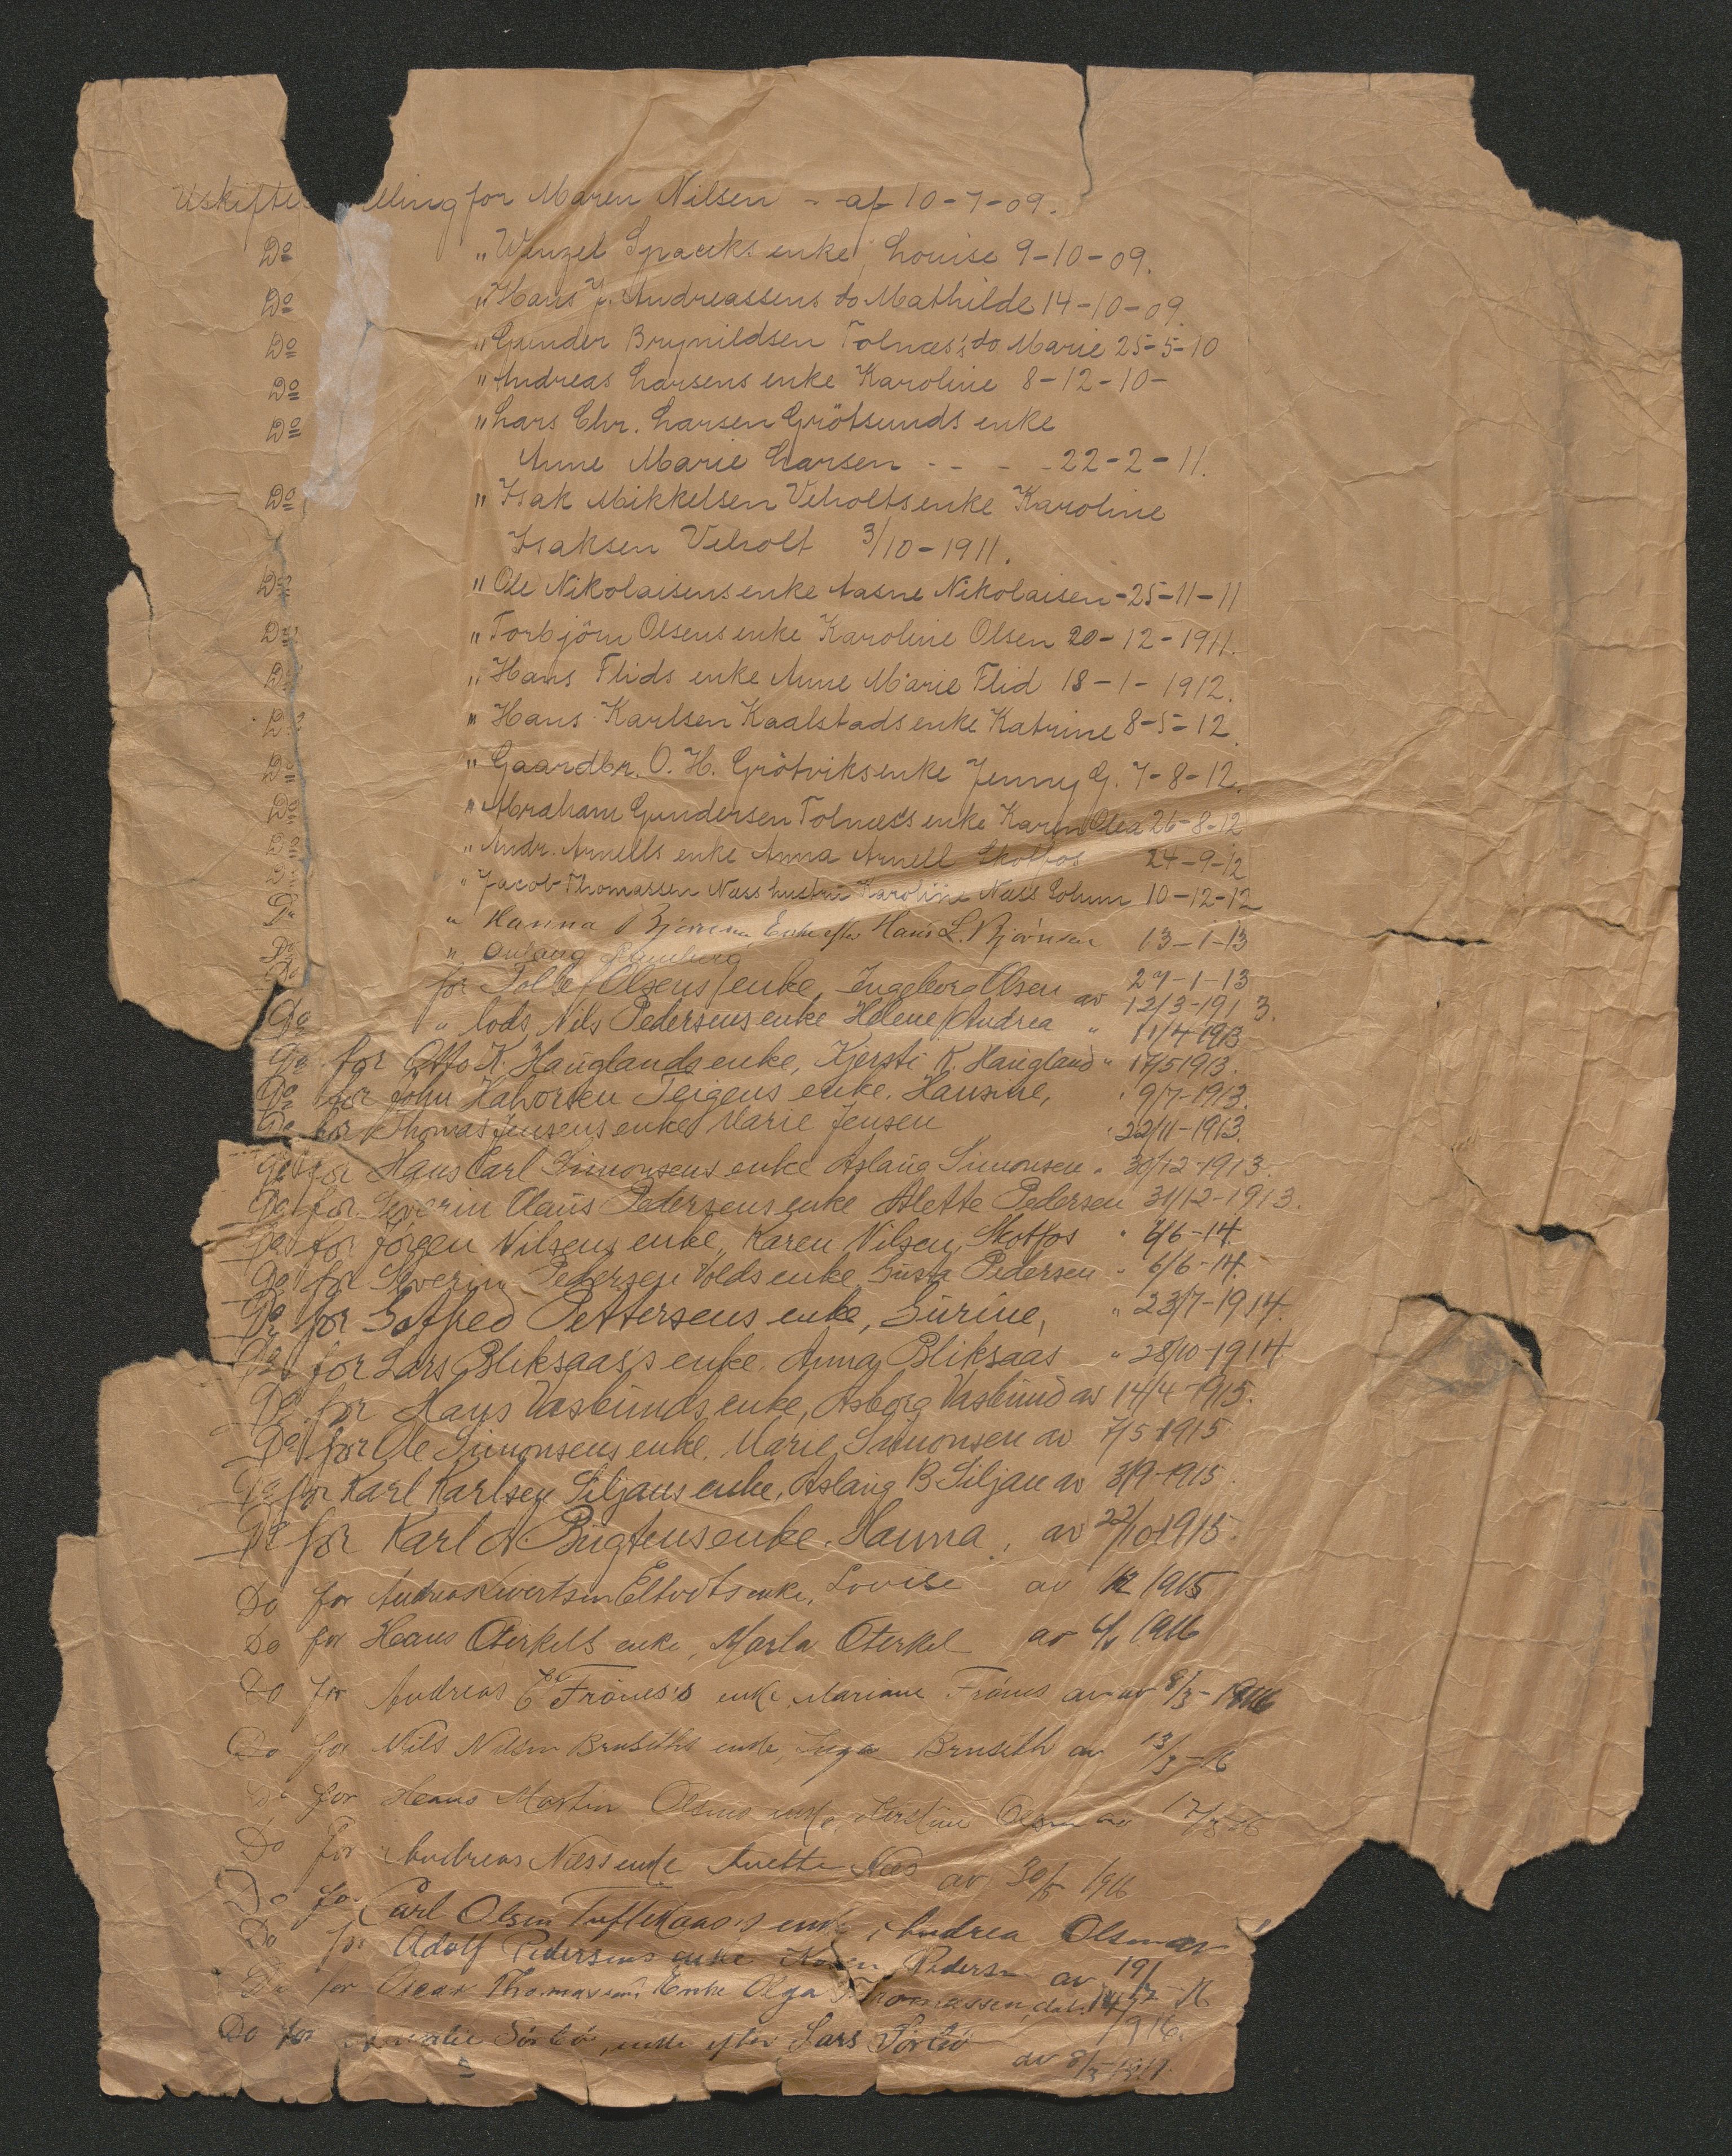 Uskifte lling for Maren Nilsen - af 10-7-09.
Do " Wenzel Spaecks enke Louise 9-10-09.
Do " Hans J. Andreassens do Mathilde 14-10-09.
Do " Gunder Brynildsen Tolnæs's do Marie 25-5-10
Do " Andreas Larsens enke Karoline 8-12-10-
Do " Lars Chr. Larsen Grötsunds enke
Anne Marie Larsen - - - - 22-2-11.
Do " Isak Mikkelsen Veholts enke Karoline
Isaksen Veholt 3/10-1911.
Do " Ole Nikolaisens enke Aasne Nikolaisen - 25-11-11
Do " Torbjörn Olsens enke Karoline Olsen 20-12-1911.
Do " Hans Flids enke Anne Marie Flid 18-1-1912.
Do " Hans Karlsen Kaalstads enke Katrine 8-5-12.
Do " Gaardbr. O. H. Grötviks enke Jenny G. 7-8-12.
Do " Abraham Gundersen Tolnæs's enke Karen Olea 26-8-12
Do " Andr. Arnells enke Anna Arnell Skotfos 24-9-12
Do " Jacob Thomassen Næss hustru Karoline Næss Solum 10-12-12
Do " Hanna Bjørnsen, Enke efter Hans L. Bjørnsen 13-1-13
Do " 27-1-13
Do for Olsens enke, Ingeborg Olsen av 12/3-1913.
Do " lods Nils Pedersens enke Helene Andrea " 11/4 1913
Do for Otto K. Hauglands enke, Kjersti K. Haugland " 17/5 1913.
Do for John Halvorsen Teigens enke, Hansine, " 9/7-1913.
Do for Thomas Jensens enke Marie Jensen " 22/11-1913.
Do for Hans Carl Simonsens enke Aslaug Simonsen " 30/12-1913.
Do for Severin Claus Pedersens enke Alette Pedersen 31/12-1913.
Do for Jörgen Nilsens enke, Karen Nilsen, Skotfos " 6/6-14.
Do for Severin Pedersen Volds enke Gusta Pedersen " 6/6-14.
Do for Gotfred Pettersens enke, Gurine, " 23/7-1914.
Do for Lars Bliksaas's enke, Anna Bliksaas " 28/10-1914
Do for Hans Vasbunds enke, Asborg Vasbund av 14/4-1915.
Do for Ole Simonsens enke, Marie Simonsen av 7/5 1915
Do for Karl Karlsen Siljans enke, Aslaug B. Siljan av 3/9-1915.
Do for Karl N Bugtens enke, Hanna, av 22/10 1915.
Do for Andreas enke, Lovise av 1915
Do for Hans Oterkels enke, Marta Oterkel av 1916
Do for Andreas E Frönes's enke Mariane Frönes av 8/3-1916
Do for Nils Nilsen Bruseths enke, Inga Bruseth av 13/3-16
Do for Hans Martin Olsens enke, Olsen av
Do for Andreas Næss enke Anette Næs av 30/5 1916
Do for Carl Olsen Tuftekaas's enke, Andrea Olsen av
Do for Adolf Pedersens enke Karen Pedersen av 19/ - 16
Do for Oscar Thomassens Enke Olga Thomassen, 1916.
Do for Sörbö, enke efter Lars Sörbö
av 8/